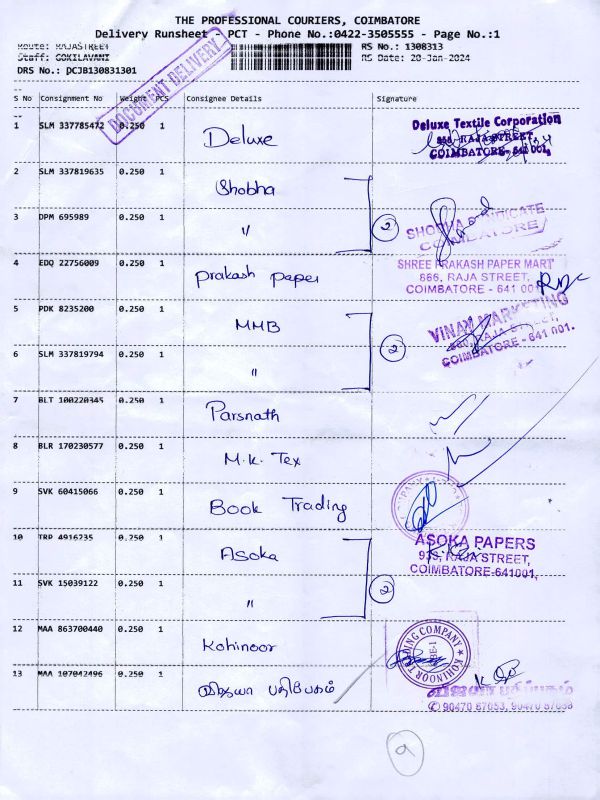 THE PROFESSIONAL COURIERS, COIMBATORE
Delivery Runsheet - PCT - Phone No.:0422-3505555 - Page No.:1
Route: RAJASTREET
RS No.: 1308313
Staff: GOKILAVANI
RS Date: 20-Jan-2024
DRS No.: DCJB130831301
DOCUMENT DELIVERY
S No Consignment No Weight PCS Consignee Details Signature
1 SLM 337785472 0.250 1 Deluxe
Deluxe Textile Corporation
RAJA STREET,
COIMBATORE- 641 001,
2 SLM 337819635 0.250 1 Shobha
3 DPM 695989 0.250 1 "
2
COIMBATORE
4 EDQ 22756009 0.250 1 prakash paper
SHREE PRAKASH PAPER MART
866, RAJA STREET,
COIMBATORE - 641 001
5 PDK 8235200 0.250 1 MMB
VINAY MARKETING
RAJA STREET,
COIMBATORE - 641 001.
6 SLM 337819794 0.250 1 "
2
7 BLT 100220345 0.250 1 Parsnath
8 BLR 170230577 0.250 1 M.K. Tex
9 SVK 60415066 0.250 1 Book Trading
10 TRP 4916235 0.250 1 Asoka
ASOKA PAPERS
RAJA STREET,
COIMBATORE-641001,
11 SVK 15039122 0.250 1 "
2
12 MAA 863700440 0.250 1 Kohinoor
KOHINOOR TRADING COMPANY
CBE-1
13 MAA 107042496 0.250 1 விஜயா பதிப்பகம்
விஜயா பதிப்பகம்
9